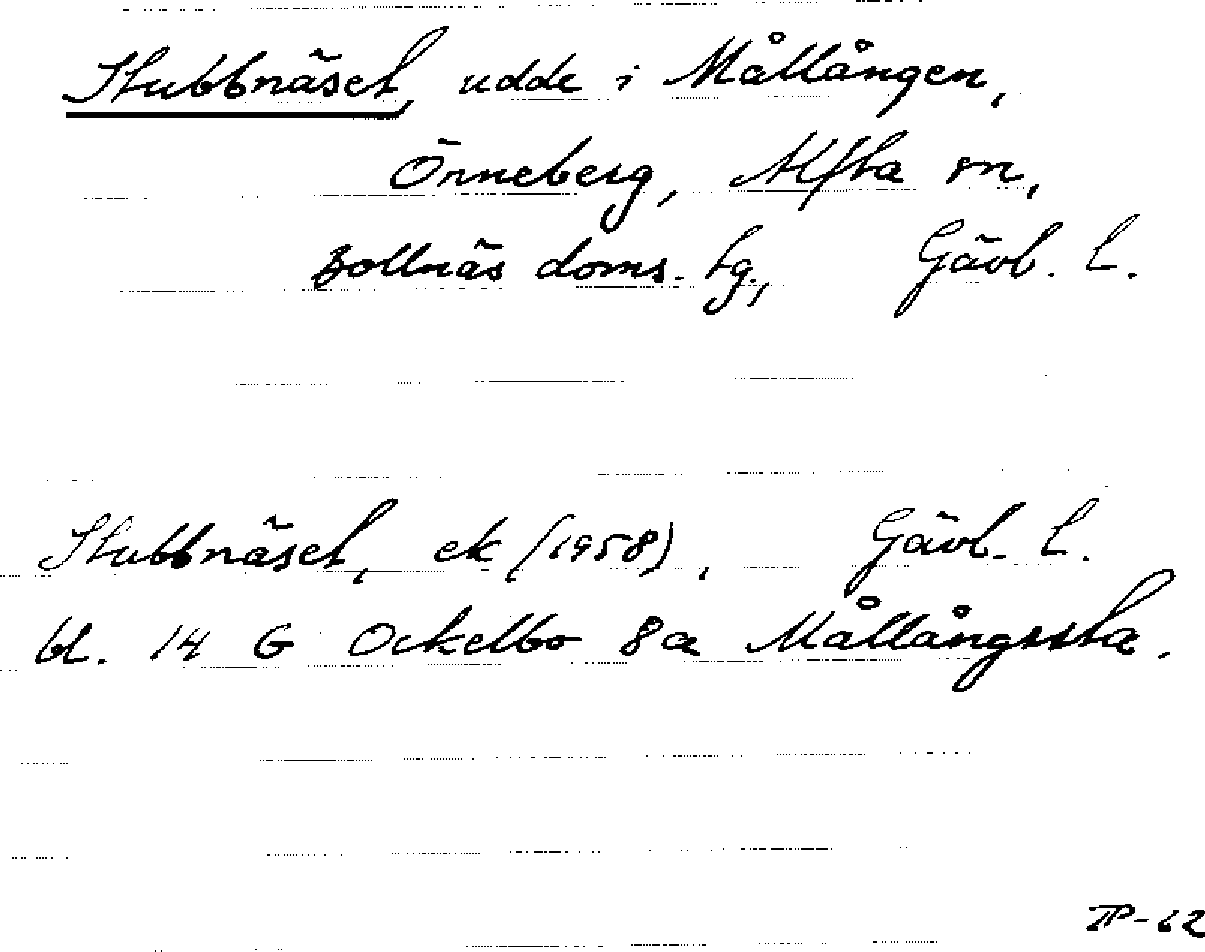 Stubbnäset, udde i Mållången,
Örneberg, Alfta sn,
Bollnäs doms. tg., Gävl. l.
Stubbnäset, ek (1958), Gävl. l.
bl. 14 G Ockelbo 8a Mållångssta.
TP-62